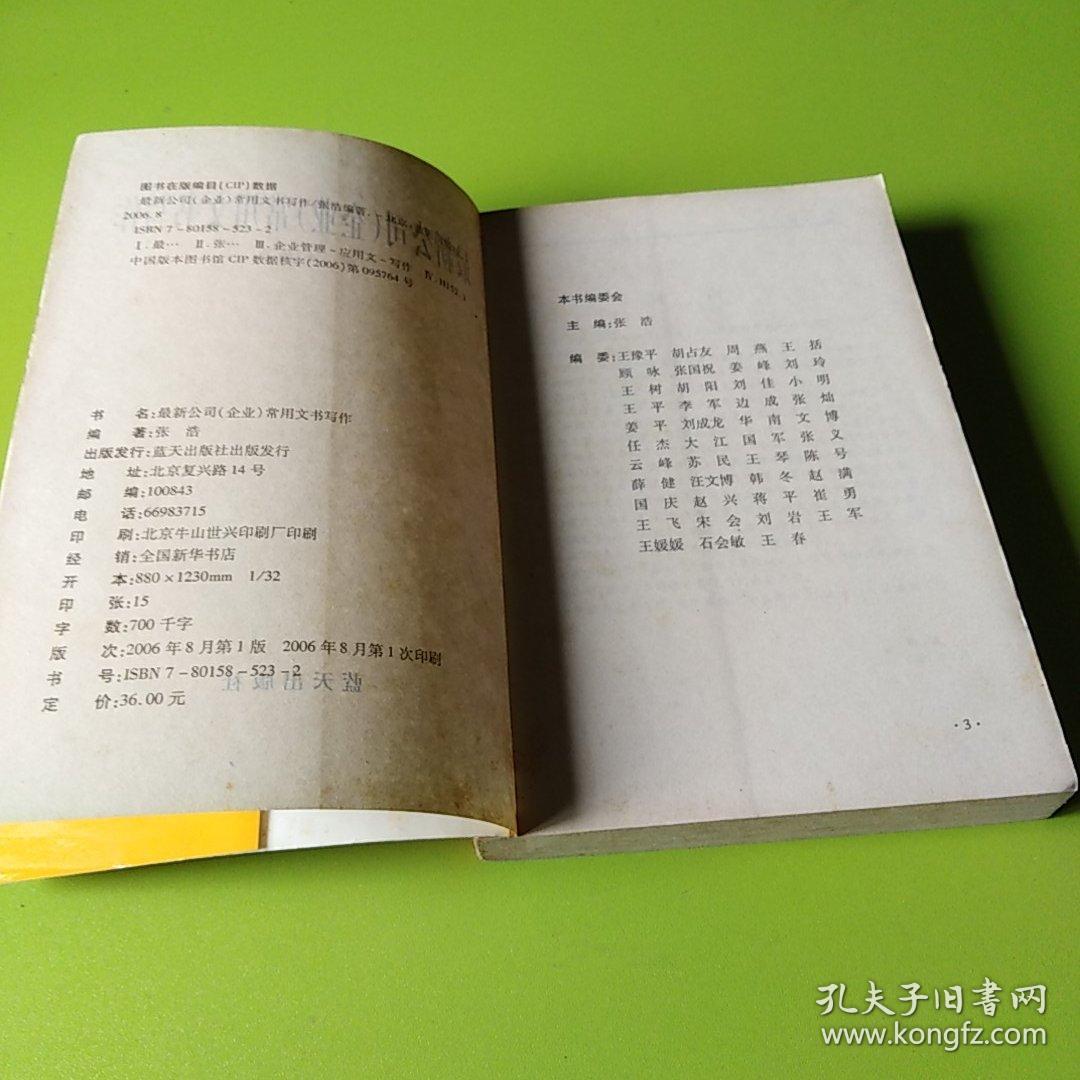 图书在版编目(CIP)数据
最新公司(企业)常用文书写作/张浩编著.
2006.8
ISBN 7-80158-523-2
Ⅰ.最… Ⅱ.张… Ⅲ.企业管理-应用文-写作 Ⅳ.H152.3
中国版本图书馆CIP数据核字(2006)第095764号
书 名:最新公司(企业)常用文书写作
编 著:张 浩
出版发行:蓝天出版社出版发行
地 址:北京复兴路14号
邮 编:100843
电 话:66983715
印 刷:北京牛山世兴印刷厂印刷
经 销:全国新华书店
开 本:880×1230mm 1/32
印 张:15
字 数:700千字
版 次:2006年8月第1版 2006年8月第1次印刷
书 号:ISBN 7-80158-523-2
定 价:36.00元
本书编委会
主 编:张 浩
编 委:王豫平 胡占友 周 燕 王 括
顾 咏 张国祝 姜 峰 刘 玲
王 树 胡 阳 刘 佳 小 明
王 平 李 军 边 成 张 灿
姜 平 刘成龙 华 南 文 博
任 杰 大 江 国 军 张 义
云 峰 苏 民 王 琴 陈 号
薛 健 汪文博 韩 冬 赵 满
国 庆 赵 兴 蒋 平 崔 勇
王 飞 宋 会 刘 岩 王 军
王媛媛 石会敏 王 春
·3·
孔夫子旧書网
www.kongfz.com